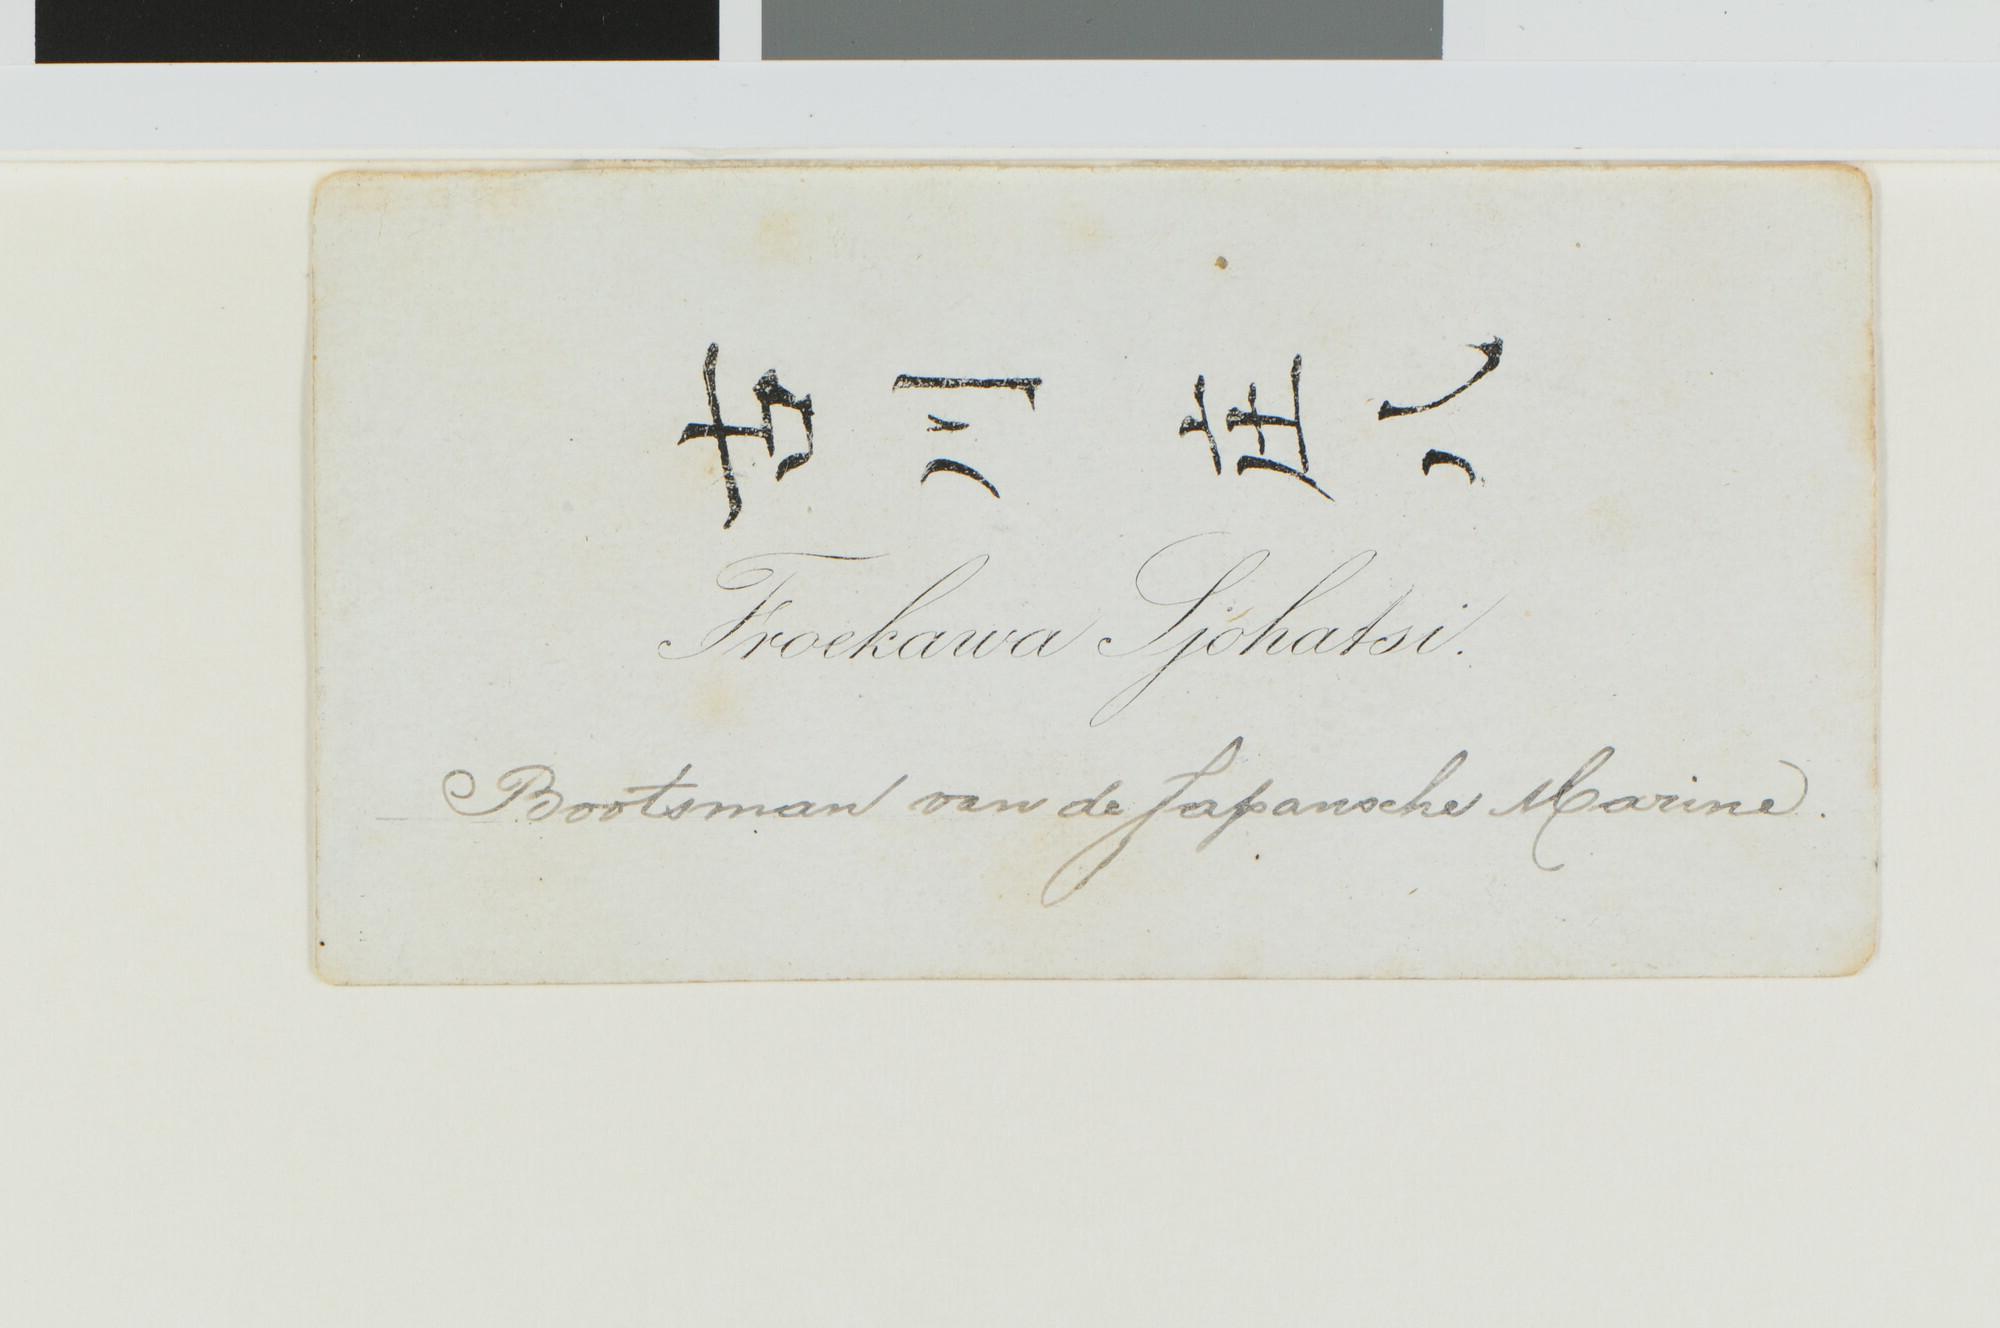 古川 庄八
Froekawa Sjohatsi.
Bootsman van de Japansche Marine.